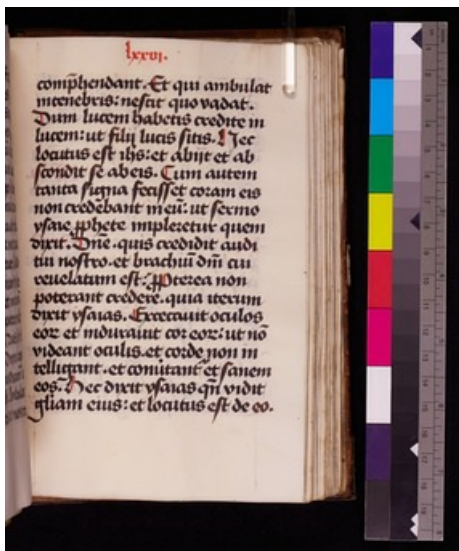 lxxvi.
comp̄hendant. Et qui ambulat
intenebris: nescit quo vadat.
Dum lucem habetis credite in
lucem: ut filij lucis sitis. Hec
locutus est ihs: et abijt et ab
scondit se ab eis. Cum autem
tanta signa fecisset coram eis
non credebant in eū: ut sermo
ysaie ꝓphete impleretur quem
dixit. Dn̄e. quis credidit audi
tui nostro. et brachiū dn̄i cui
reuelatum est: ꝓpterea non
poterant credere. quia iterum
dixit ysaias. Excecauit oculos
eoꝝ et indurauit cor eoꝝ: ut nō
videant oculis. et corde non in
telligant. et conūtant et sanem
eos. Hec dixit ysaias qn̄ vidit
gl̄iam eius: et locutus est de eo.